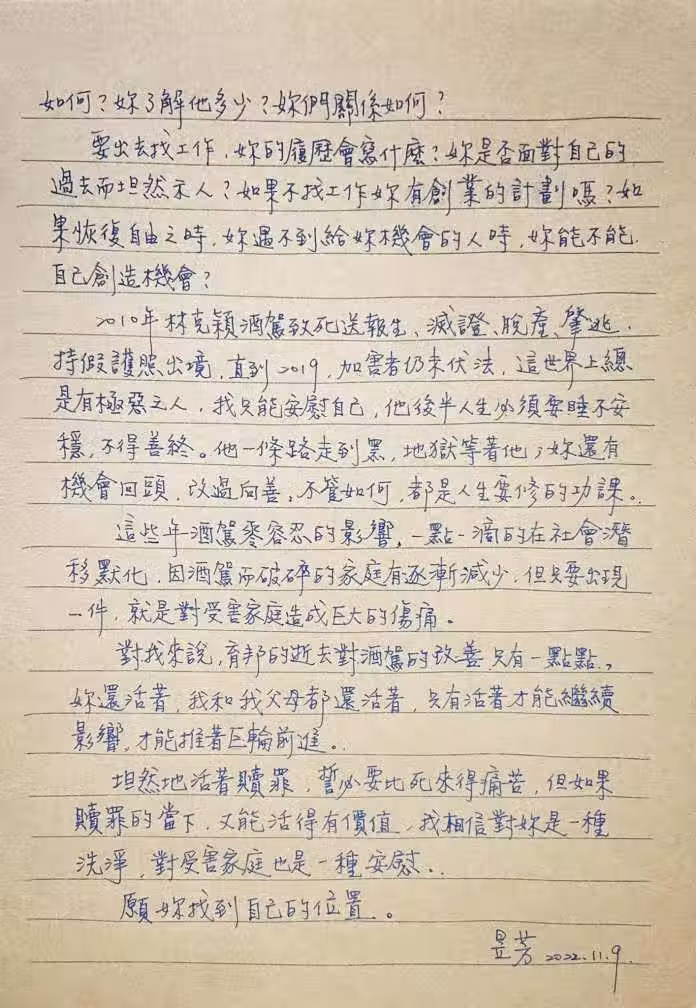 如何？妳了解他多少？妳們關係如何？
要出去找工作，妳的履歷會寫什麼？妳是否面對自己的
過去而坦然示人？如果不找工作妳有創業的計劃嗎？如
果恢復自由之時，妳遇不到給妳機會的人時，妳能不能
自己創造機會？
2010年林克穎酒駕致死送報生、滅證、脫產、肇逃，
持假護照出境，直到2019，加害者仍未伏法，這世界上總
是有極惡之人，我只能安慰自己，他後半人生必須要睡不安
穩，不得善終。他一條路走到黑，地獄等著他；妳還有
機會回頭，改過向善，不管如何，都是人生要修的功課。
這些年酒駕零容忍的影響，一點一滴的在社會潛
移默化，因酒駕而破碎的家庭有逐漸減少，但只要出現
一件，就是對受害家庭造成巨大的傷痛。
對我來說，育邦的逝去對酒駕的改善只有一點點，
妳還活著，我和我父母都還活著，只有活著才能繼續
影響，才能推著巨輪前進。
坦然地活著贖罪，誓必要比死來得痛苦，但如果
贖罪的當下，又能活得有價值，我相信對妳是一種
洗淨，對受害家庭也是一種安慰。
願妳找到自己的位置。
昱芳 2022.11.9.